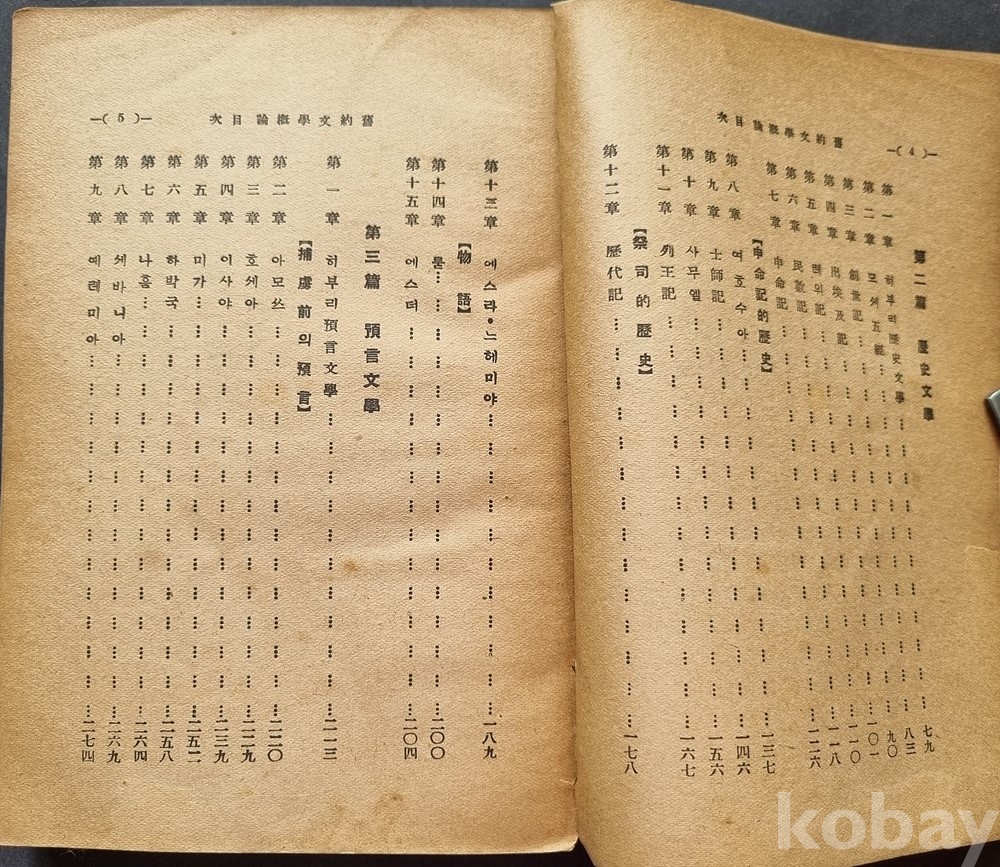 舊約文學概論目次
—( 4 )—
第二篇 歷史文學
第一章 허부리歷史文學………七九
第二章 모세五經………八三
第三章 創世記………九〇
第四章 出埃及記………一〇一
第五章 레위記………一一〇
第六章 民數記………一一八
第七章 申命記………一二六
【申命記的歷史】
第八章 여호수아………一三七
第九章 士師記………一四六
第十章 사무엘………一五六
第十一章 列王記………一六七
【祭司的歷史】
第十二章 歷代記………一七八
舊約文學概論目次
—( 5 )—
第十三章 에스라・느헤미야………一八九
【物語】
第十四章 룻………二〇〇
第十五章 에스더………二〇四
第三篇 預言文學
第一章 허부리預言文學………二一三
【捕虜前의預言】
第二章 아모쓰………二二〇
第三章 호세아………二二九
第四章 이사야………二三九
第五章 미가………二五二
第六章 하박국………二五八
第七章 나훔………二六四
第八章 쎄바니아………二六九
第九章 예레미아………二七四
kobay